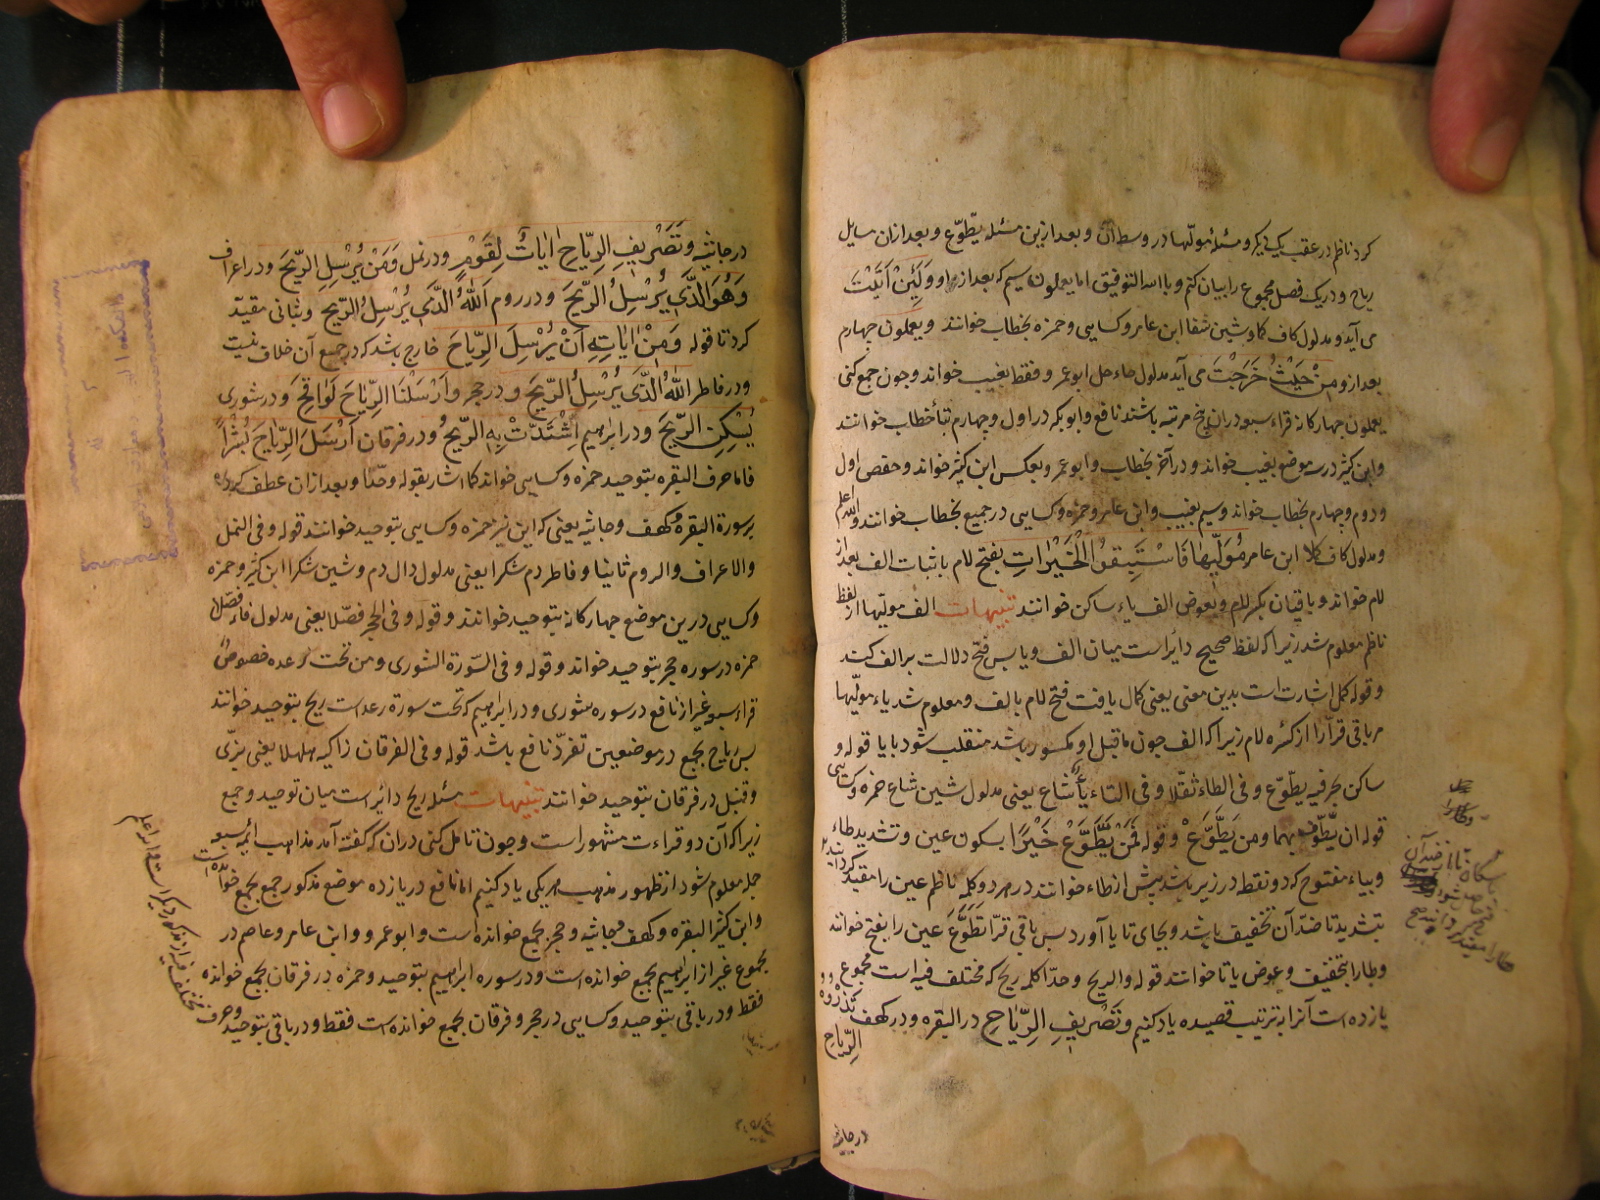 کرد ناظم در عقب یک یکدیگر و مسئله مولّیها در وسط آن و بعد ازین مسئله یطّوّع و بعد از آن مسایل
ریاح و در یک فصل مجموع را بیان کنم و بالله التوفیق اما یعملون سیم که بعد از و لَئِنْ اَتَیْتَ
می آید و مدلول کاف کما و شین شفا ابن عامر و کسایی و حمزه بخطاب خوانند و یعملون چهارم
بعد از و مِنْ حَیْثُ خَرَجْتَ می آید مدلول حاء حل ابو عمرو فقط بغیب خواند و چون جمع کنی
یعملون چهارکانه قراء سبعه در آن پنج مرتبه باشند نافع و ابو بکر در اول و چهارم بتاء خطاب خوانند
و ابن کثیر در سه موضع بغیب خواند و در آخر بخطاب و ابو عمرو بعکس ابن کثیر خواند و حفص اول
و دوم و چهارم بخطاب خواند و سیم بغیب و ابن عامر و حمزه و کسایی در جمیع بخطاب خوانند والله اعلم
و مدلول کاف کملا ابن عامر مُوَلّیٰهَا فَاسْتَبِقُوا الْخَیْرَاتِ بفتح لام باثبات الف بعد از
لام خواند و باقیان بکسر لام و بعوض الف یاء ساکن خوانند تنبیهات الف مولّیها از لفظ
ناظم معلوم شد زیرا که لفظ صحیح دایر است میان الف و یا پس فتح دلالت بر الف کند
و قوله کمل اشارت است بدین معنی یعنی کمال یافت فتح لام بالف و معلوم شد یاء مولّیها
مر باقی قرّا را از کسره لام زیرا که الف چون ما قبل او مکسور باشد منقلب شود بیا قوله و
ساکن بحرفیه یطّوّع و فی الطاء ثقّلا و فی التاء یاء شاع یعنی مدلول شین شاع حمزه و کسایی
قوله ان یطّوّف بهما و من یَطَّوَّعْ و قوله فَمَنْ یَطَّوَّعْ خَیْرًا بسکون عین و تشدید طاء
و بیاء مفتوح که دو نقطه در زیر باشد پیش از طاء خوانند در هر دو کلمه ناظم عین را مقید کردانید
بتشدید تا ضد آن تخفیف باشد و بجای تا یا آورد پس باقی قرّا تَطَوَّعَ عین را بفتح خوانند
و طا را بتخفیف و عوض یا تا خوانند قوله و الریح وحّدا کلمه ریح که مختلف فیه است مجموع
یازده است آنرا بترتیب قصیده یاد کنیم وَتَصْرِیفِ الرِّیَاحِ در البقره و در کهف تَذْرُوهُ الرِّیَاح
در جاثیه
در جاثیه وَتَصْرِیفِ الرِّیَاحِ اٰیَاتٌ لِقَوْمٍ و در نمل وَمَنْ یُرْسِلُ الرِّیحَ و در اعراف
وَهُوَ الَّذِی یُرْسِلُ الرِّیحَ و در روم اَللّٰهُ الَّذِی یُرْسِلُ الرِّیحَ و بثانی مقیّد
کرد تا قوله وَمِنْ اٰیَاتِهِ اَنْ یُرْسِلَ الرِّیَاحَ خارج باشد که در جمیع آن خلاف نیست
و در فاطر اللّٰهُ الَّذِی یُرْسِلُ الرِّیحَ و در حجر وَاَرْسَلْنَا الرِّیَاحَ لَوَاقِحَ و در شوری
یُسْکِنِ الرِّیحَ و در ابراهیم اِشْتَدَّتْ بِهِ الرِّیحُ و در فرقان اَرْسَلَ الرِّیَاحَ بُشْرًا
فاما حرف البقره بتوحید حمزه و کسایی خواند کما اشار بقوله وحّدا و بعد از آن عطف کرده
بر سورة البقره کهف و جاثیه یعنی که این نیز حمزه و کسایی بتوحید خوانند قوله و فی النمل
والاعراف والروم ثانیا و فاطر دم شکرا یعنی مدلول دال دم و شین شکرا ابن کثیر و حمزه
و کسایی درین موضع چهارکانه بتوحید خوانند و قوله و فی الحجر فصّلا یعنی مدلول فاء فصّل
حمزه در سوره حجر بتوحید خواند و قوله و فی السّورة الشوری و من تحت رعده خصوصٌ
قراء سبعه غیر از نافع در سوره شوری و در ابراهیم که تحت سورة رعد است ریح بتوحید خوانند
پس ریاح بجمع در موضعین تفرّد نافع باشد قوله و فی الفرقان زاکیه هلّلا یعنی بزّی
و قنبل در فرقان بتوحید خوانند تنبیهات مسئله ریح دایر است میان توحید و جمع
زیرا که آن دو قراءت مشهور است و چون تامل کنی در آن که گفته آمد مذاهب ایمه سبعه
جمله معلوم شود از ظهور مذهب هر یکی یاد کنیم اما نافع در یازده موضع مذکور جمع بجمع خوانده است
و ابن کثیر البقره و کهف و جاثیه و حجر بجمع خوانده است و ابو عمرو و ابن عامر و عاصم در
مجموع غیر از ابراهیم بجمع خوانده است و در سوره ابراهیم بتوحید و حمزه در فرقان بجمع خوانده
فقط و در باقی بتوحید و کسایی در حجر و فرقان بجمع خوانده است فقط و در باقی بتوحید و حرف
مختلف فیه از مذکور دیگر است والله اعلم